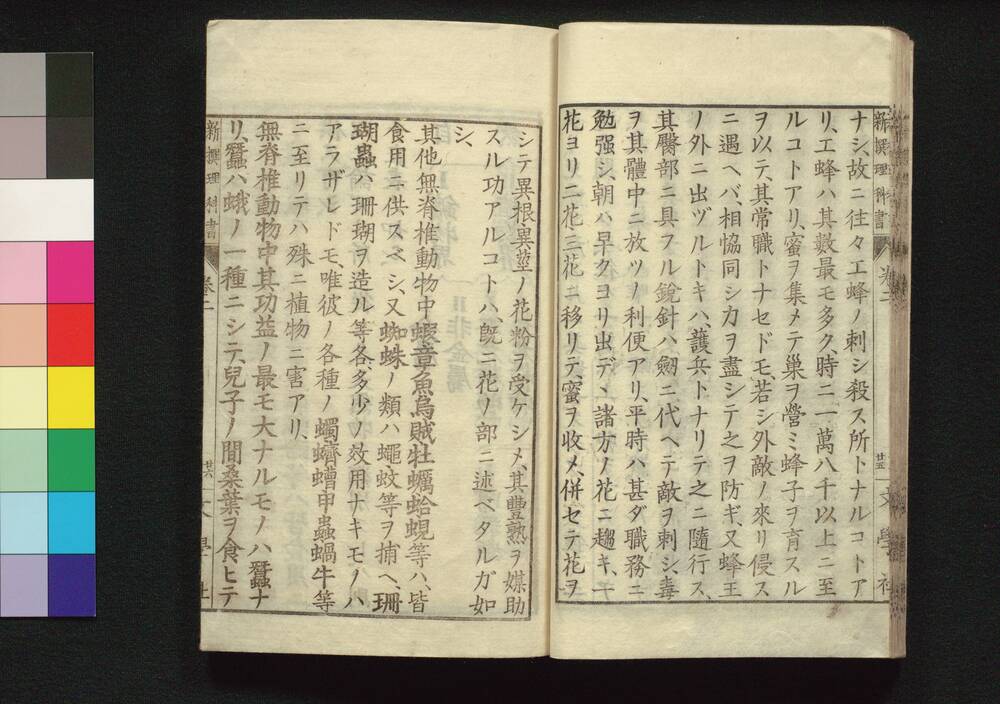 新撰理科書 卷二 廿五 文學社
ナシ、故ニ往々工蜂ノ刺シ殺ス所トナルコトア
リ、工蜂ハ其數最モ多ク、時ニ一萬八千以上ニ至
ルコトアリ、蜜ヲ集メテ巢ヲ營ミ蜂子ヲ育スル
ヲ以テ、其常職トナセドモ、若シ外敵ノ來リ侵ス
ニ遇ヘバ、相協同シ力ヲ盡シテ之ヲ防ギ、又蜂王
ノ外ニ出ヅルトキハ、護兵トナリテ之ニ隨行ス、
其臀部ニ具フル銳針ハ劒ニ代ヘテ敵ヲ刺シ、毒
ヲ其體中ニ放ツノ利便アリ、平時ハ甚ダ職務ニ
勉强シ、朝ハ早クヨリ出デヽ諸方ノ花ニ趨キ、一
花ヨリ二花三花ニ移リテ、蜜ヲ收メ、併セテ花ヲ
シテ異根異莖ノ花粉ヲ受ケシメ、其豐熟ヲ媒助
スル功アルコトハ、旣ニ花ノ部ニ述ベタルガ如
シ、
其他無脊椎動物中、蝦章魚烏賊牡蠣蛤蜆等ハ、皆
食用ニ供スベシ、又蜘蛛ノ類ハ蠅蚊等ヲ捕ヘ、珊
瑚蟲ハ珊瑚ヲ造ル等各、多少ノ效用ナキモノハ
アラザレドモ、唯彼ノ各種ノ蠋蠐螬甲蟲蝸牛等
ニ至リテハ殊ニ植物ニ害アリ、
無脊椎動物中其功益ノ最モ大ナルモノハ蠶ナ
リ、蠶ハ蛾ノ一種ニシテ、兒子ノ間桑葉ヲ食ヒテ
新撰理科書 卷二 廿六 文學社